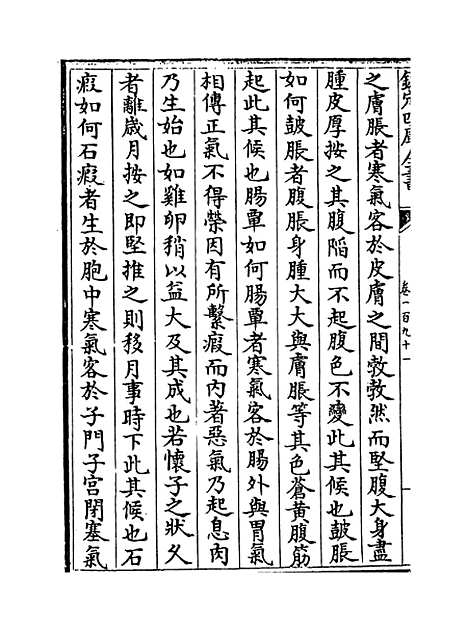 欽定四庫全書
卷一百九十一
之膚脹者寒氣客於皮膚之間㲉㲉然而堅腹大身盡
腫皮厚按之其腹陷而不起腹色不變此其候也皷脹
如何皷脹者腹脹身腫大大與膚脹等其色蒼黄腹筋
起此其候也腸覃如何腸覃者寒氣客於腸外與胃氣
相傳正氣不得榮因有所繫瘕而内著惡氣乃起息肉
乃生始也如雞卵稍以益大及其成也若懷子之狀乆
者離歲月按之即堅推之則移月事時下此其候也石
瘕如何石瘕者生於胞中寒氣客於子門子宫閉塞氣